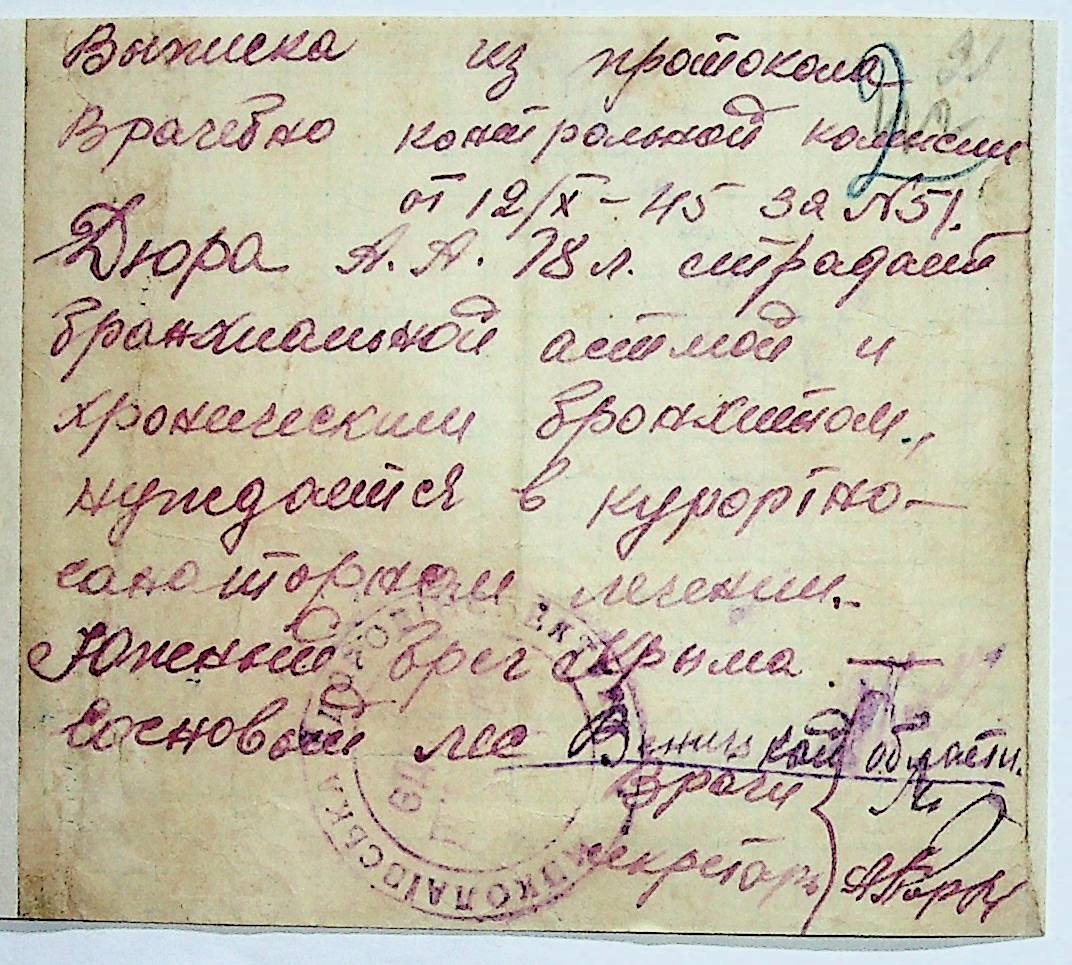 Выписка из протокола
Врачебно контрольной комисии
от 12/X - 45 за N51.
Дюра А. А. 78 л. страдает
бранхиальной астмой и
хроническим бронхитом,
нуждается в курортно-
санаторном лечении.
Южный брег Крыма —
Сосновый лес Виницкой области.
Врачи
секретарь
2